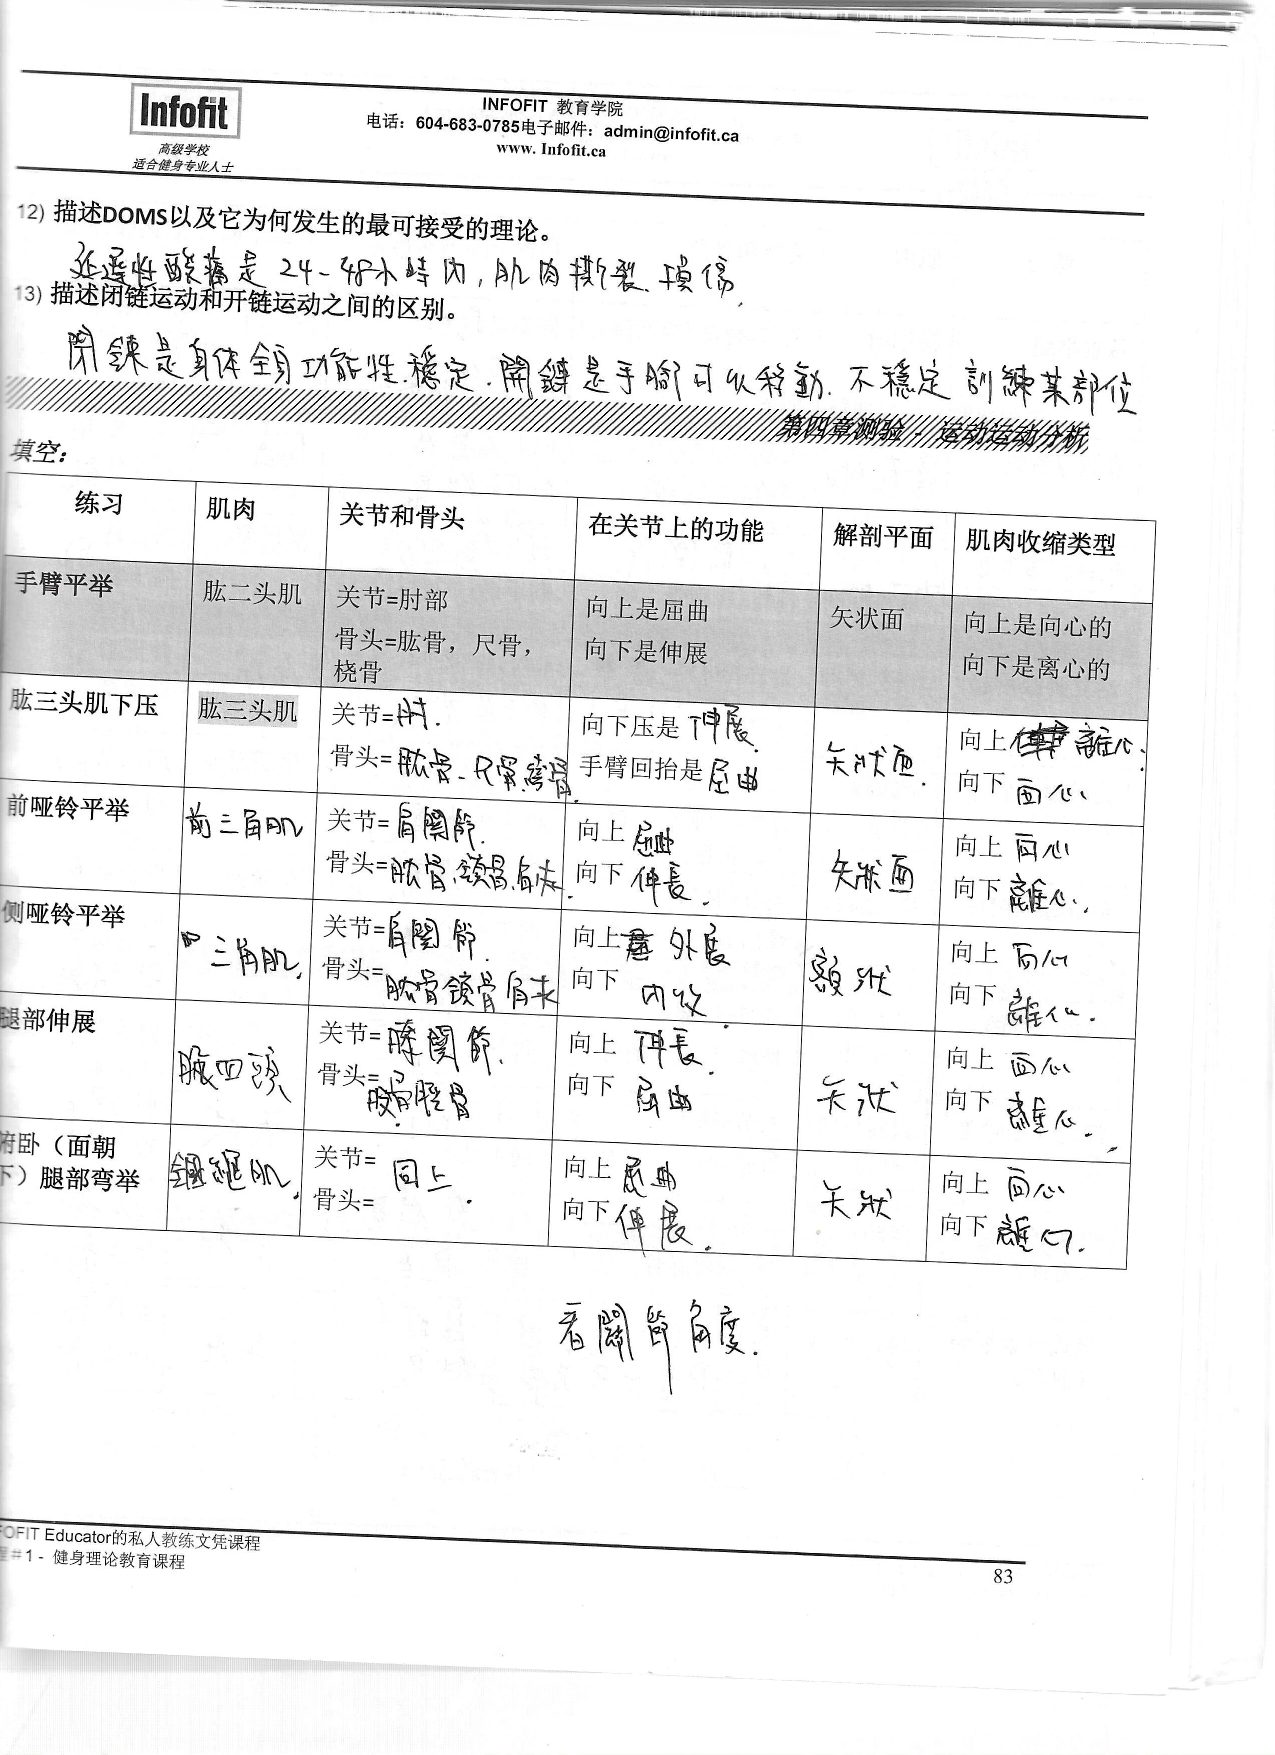 Infofit
高级学校
适合健身专业人士
INFOFIT 教育学院
电话：604-683-0785电子邮件：admin@infofit.ca
www. Infofit.ca
12) 描述DOMS以及它为何发生的最可接受的理论。
延遲性酸痛是 24-48小時內，肌肉撕裂、損傷.
13) 描述闭链运动和开链运动之间的区别。
閉鍊是身体全身功能性.穩定.開鍊是手腳可以移動.不穩定 訓練某部位
第四章测验 - 运动运动分析
填空：
练习 肌肉 关节和骨头 在关节上的功能 解剖平面 肌肉收缩类型
手臂平举 肱二头肌 关节=肘部 向上是屈曲 矢状面 向上是向心的
骨头=肱骨，尺骨， 向下是伸展 向下是离心的
桡骨
肱三头肌下压 肱三头肌 关节=肘. 向下压是 伸展 矢狀面. 向上 離心.
骨头=肱骨 尺骨 手臂回抬是屈曲 向下 向心.
前哑铃平举 前三角肌 关节=肩關節. 向上 屈曲 矢狀面 向上 向心
骨头=肱骨.鎖骨.肩夾. 向下 伸長. 向下 離心.
侧哑铃平举 三角肌. 关节=肩關節. 向上 外展 額狀 向上 向心
骨头=肱骨鎖骨肩夾 向下 內收. 向下 離心.
腿部伸展 腿四頭 关节=膝關節. 向上 伸長. 矢狀 向上 向心
骨头=股骨脛骨. 向下 屈曲 向下 離心.
俯卧（面朝 膕繩肌. 关节= 同上. 向上 屈曲 矢狀 向上 向心
下）腿部弯举 骨头= 向下 伸展. 向下 離心.
看關節角度.
FOFIT Educator的私人教练文凭课程
程#1 - 健身理论教育课程
83